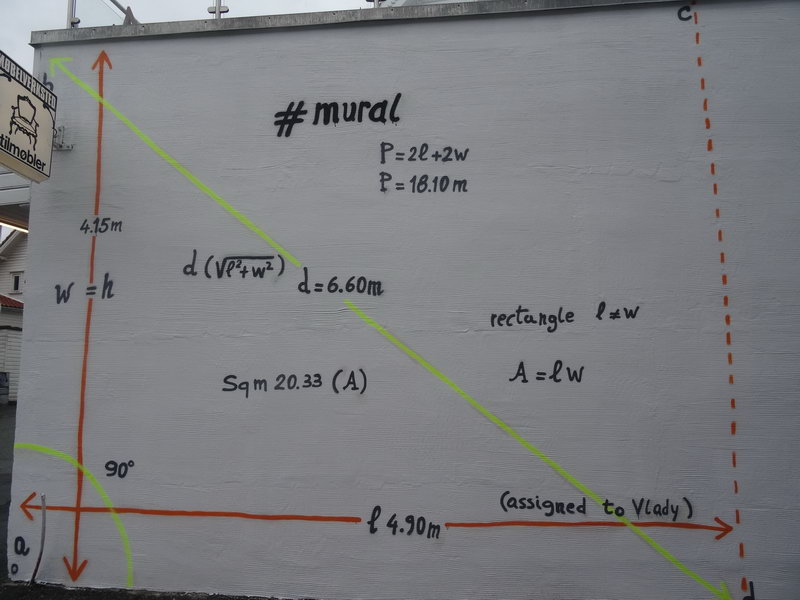 c
b
MØBELVERKSTED
stilmøbler
#mural
P=2l+2w
P=18.10m
4.15m
d(√l²+w²)
d=6.60m
w = h
rectangle l≠w
A=lw
Sqm 20.33 (A)
90°
(assigned to Vlady)
l 4.90m
a
d